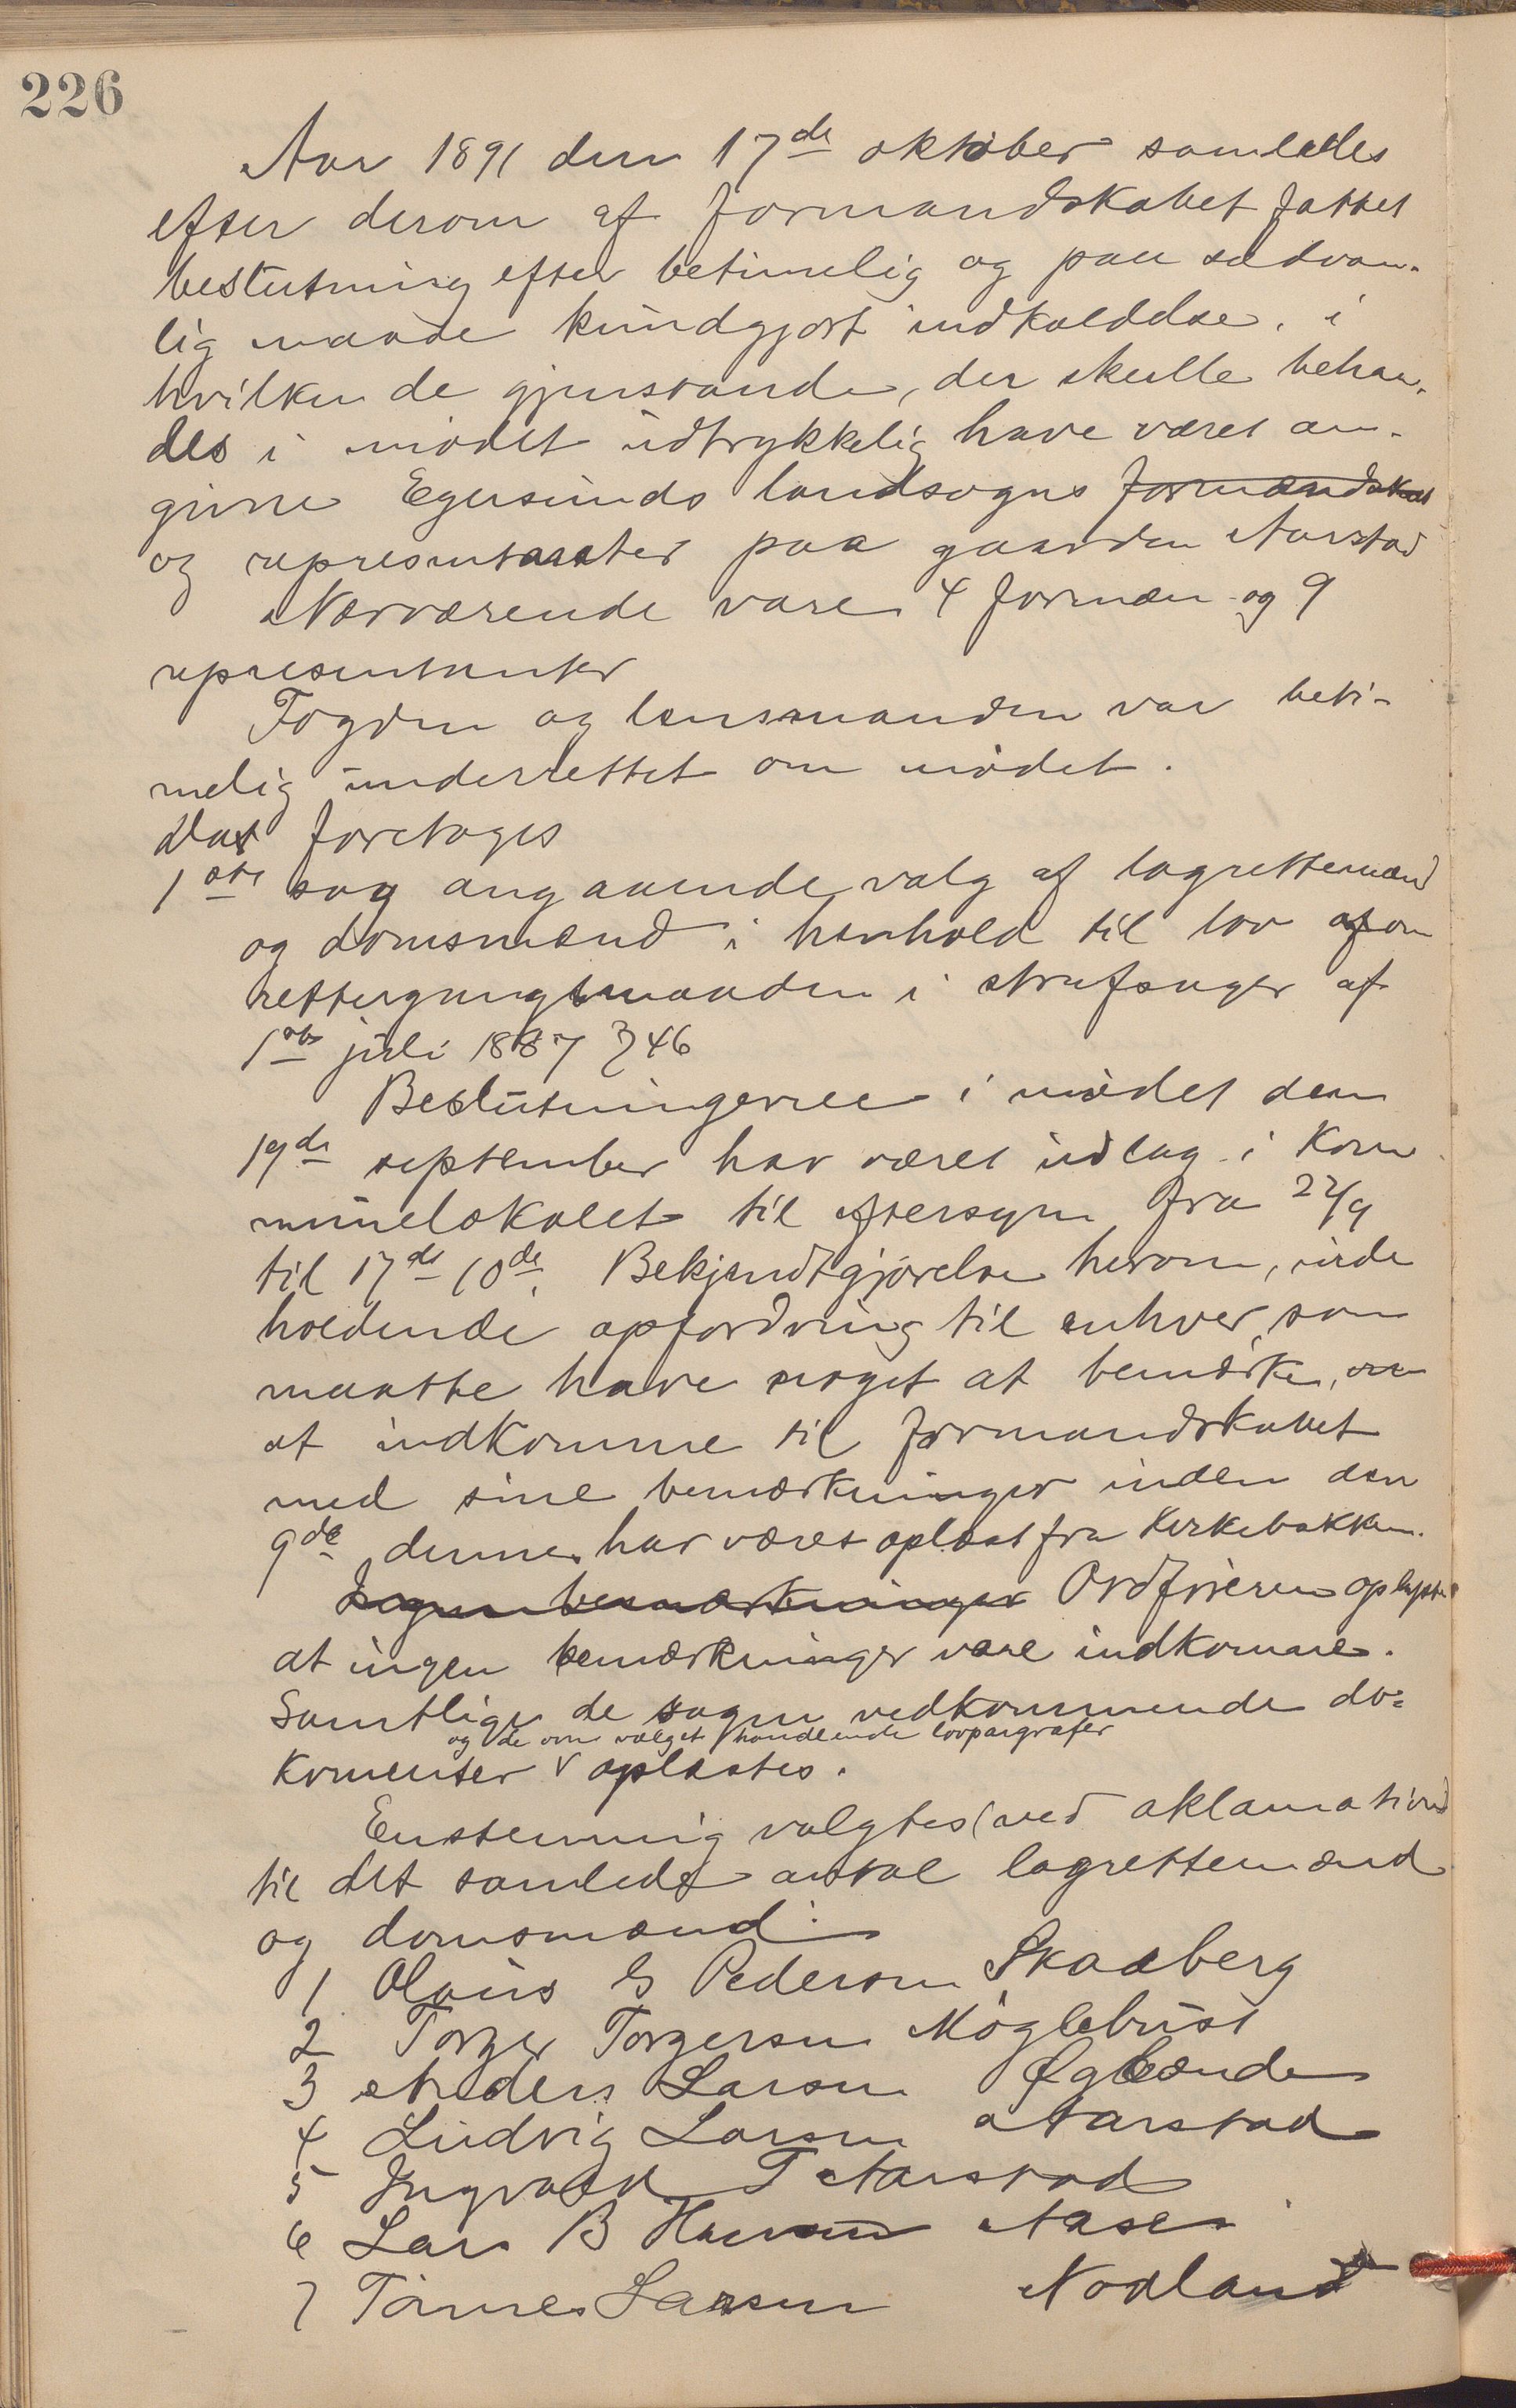 226
Aar 1891 den 17de oktober samledes
efter derom af formandskabet fattet
beslutning efter betimelig og paa sædvan-
lig maade kundgjort indkaldelse, i
hvilken de gjenstande, der skulle behan-
des i mødet udtrykkelig have været an-
givne Egersunds landsogns formandskab
og representanter paa gaarden Aarstad
Nærværende vare 4 formæn og 9
representanter
Fogden og lensmanden var beti-
melig underrettet om mødet.
Der foretoges
1ste sag angaaende valg af lagrettemænd
og domsmænd i henhold til lov om
rettergangsmaaden i strafsager af
1ste juli 1887 § 46
Beslutningerne i mødet den
19de september har været udlag i Kom
munelokalet til eftersyn fra 22/9
til 17de 10de. Bekjendtgjørelse herom, inde
holdende opfordring til enhver, som
maatte have noget at bemærke, om
at indkomme til formandskabet
med sine bemærkninger inden den
9de dennes har været oplæst fra Kirkebakken.
Ingen bemærkninger Ordføreren oplyste
at ingen bemærkninger vare indkomne.
Samtlige de sagen vedkommende do-
og de om valget handlende lovpargrafer
komenter v oplæstes.
Enstemmig valgtes (ved aklamation)
til det samlede antal lagrettemænd
og domsmænd:
1 Olaus G Pedersen Skadberg
2 Torger Torgersen Møglebust
3 Anders Larsen Eglænde
4 Ludvig Larsen Aarstad
5 Ingvald T Aarstad
6 Lars B Hansen Aase
7 Tønnes Larsen Nodland